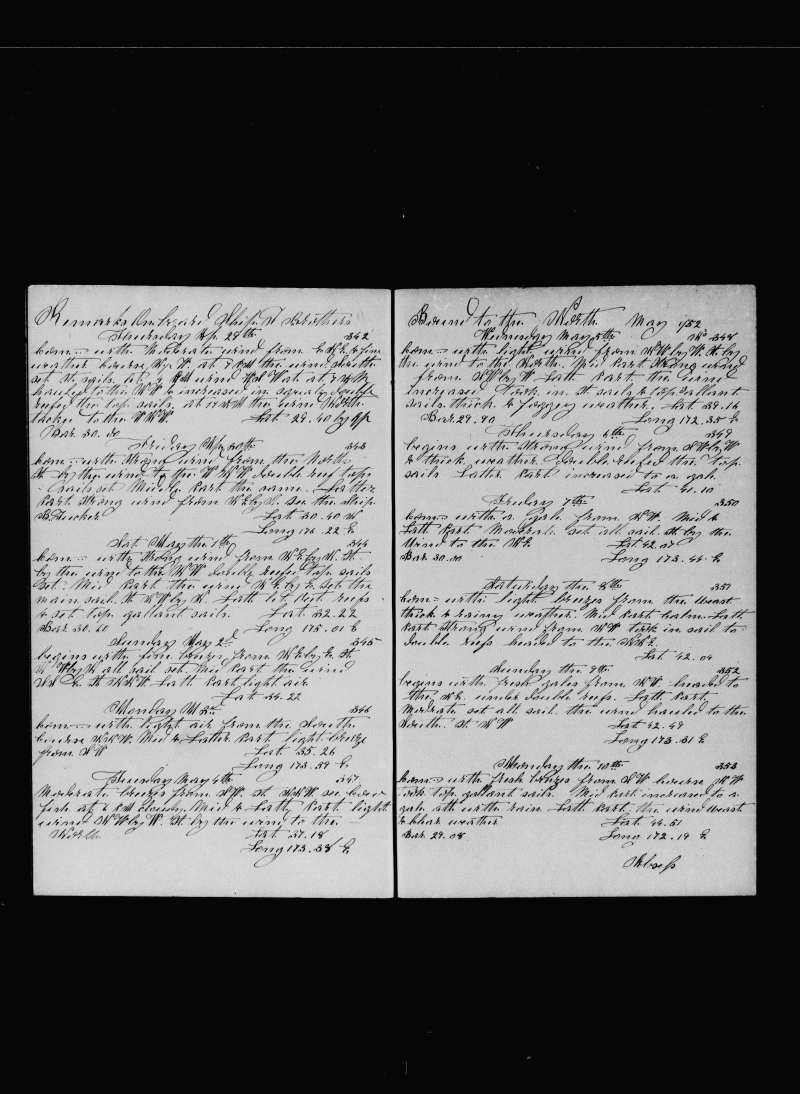 Remarks On board Ship 2 Brothers
Thursday Ap. 29th 342
com- with Moderate wind from E.N.E. & fine
weather course N by W. at 7 AM the wind South
set st sails at 7 PM wind West at 7
hauled to the N.W & increased in squalls double
reefed the top sails at 12 M the wind North
tacked to the WNW. Lat 29.40 by ap
Bar 30.30
Friday Ap 30th 343
com- with Strong wind from the North
St by the wind to the W.N.W double reef top
sails set Middle part the same. Latter
part strong wind from N.E by N. see the ship
Lat 30.40 N
Long 176.22 E
Sat May the 1th 344
com- with strong wind from N.E. by N. St
by the wind to the N.W double reef top sails
set. Mid part the wind N.E by E set the
main sail St N.W by N. Latt let out reefs
& set top gallant sails. Lat 32.22
Bar 30.60 Long 175.01 E
Sunday May 2d 345
begins with fine breeze from N.E by E. St
N.W by N all sail set. Mid part the wind
St N.N.W Latt part light air
Lat 34.22
Monday M 3d 346
com- with light air from the South
course N.N.W. Mid & Latter part light breeze
from S.W Lat 35.26
Long 173.59 E
Tuesday May 4th 347
Moderate breeze from S.W. St N.N.W. see cow
fish at 6 PM Mid & Latt part light
wind N.W by W. St by the wind to the
North Lat 37.18
Long 173.38 E
Bound to the North May 1852
Wednesday May 5th No 348
com- with light wind from N.W by W. St by
the wind to the North. Mid part Strong wind
from S.W by W Latt part the wind
increased Took in St sails & top gallant
sails thick & foggy weather. Lat 39.16
Bar 29.90 Long 172.35 E
Thursday 6th 349
begins with strong wind from S.W by W
& thick weather double reefed the top
sails Latter part increased to a gale
Lat 41.10
Friday 7th 350
com- with a gale from S.W. Mid &
Latt part Moderate set all sail St by the
wind to the N.E Lat 42.05
Bar 30.30 Long 173.44 E
Saturday the 8th 351
com- with light breezes from the West
thick & rainy weather. Mid part calm. Latt
part strong wind from N.W took in sail to
double reefs headed to the N.N.E.
Lat 42.04
Sunday the 9th 352
begins with fresh gales from N.W. headed to
the N.E. under double reefs. Latt part
Moderate set all sail the wind hauled to the
South. St N.W Lat 42.49
Long 173.31 E
Monday the 10th 353
com- with fresh breezes from S.W course N.W
with top gallant sails. Mid part increased to a
gale att with rain Latt part the wind West
& clear weather Lat 44.51
Bar 29.08 Long 172.19 E